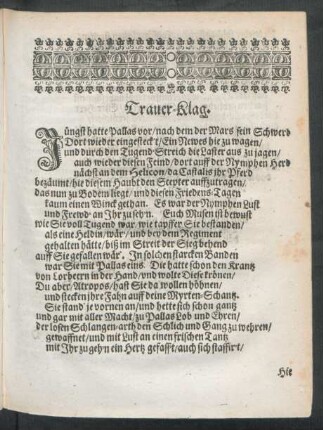 Trauer-Klag.
Jüngst hatte Pallas vor / nach dem der Mars sein Schwerd
Dort wieder eingesteckt / Ein Newes hie zu wagen /
und durch den Tugend-Streich die Laster aus zu jagen /
auch wieder diesen Feind / dort auff der Nymphen Herd
nächst an dem Helicon / da Castalis ihr Pferd
bezäumt / hie diesem Haubt den Scepter auffzutragen /
das nun zu Bodem liegt / und diesen Friedens Tagen
kaum einen Winck gethan. Es war der Nymphen Lust
und Frewd an Ihr zu sehn. Euch Musen ist bewust
wie Sie voll Tugend war / wie tapffer Sie bestanden /
als eine Heldin / wär / und bey dem Regiment
gehalten hätte / biß im Streit der Sieg behend
auff Sie gefallen wär. In solchen starcken Banden
war Sie mit Pallas eins. Die hatte schon den Krantz
von Lorbeern in der Hand / und wolte Diese krönen /
Du aber / Atropos / hast Sie da wollen höhnen /
und stecken ihr Fahn auff deine Myrten-Schantz.
Sie stand je vornen an / und hette sich schon gantz
und gar mit aller Macht / zu Pallas Lob und Ehren /
der losen Schlangen-arth den Schlich und Gang zu wehren /
gewaffnet / und mit Lust an einen frischen Tantz
mit Ihr zu gehn ein Hertz gefasst / auch sich staffirt /
Hie